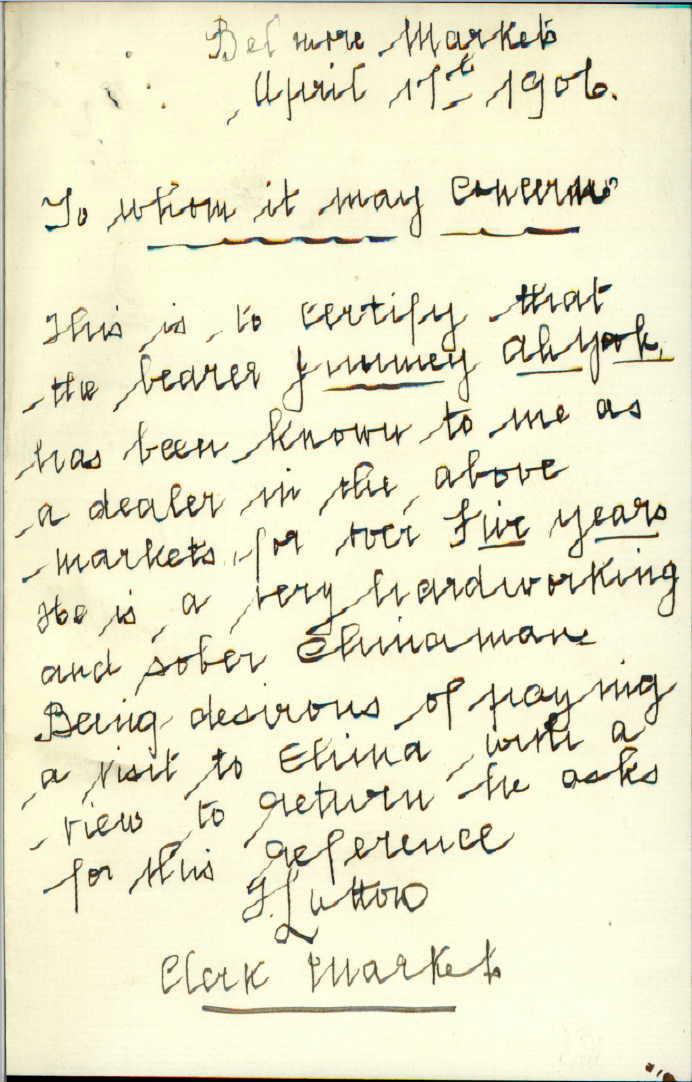 Belmore Markets
April 17th 1906.
To whom it may Concern
This is to certify that
the bearer Jimmey Ah Yok,
has been known to me as
a dealer in the above
markets for over Five years
He is a very hardworking
and sober Chinaman.
Being desirous of paying
a visit to China with a
view to return he asks
for this reference
Clerk Markets